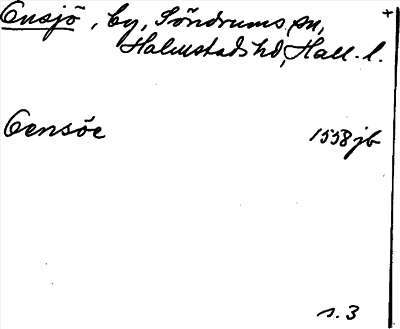 Ensjö, by, Söndrums sn, +
Halmstads hd, Hall. l.
Eensöe 1558 jb
s. 3